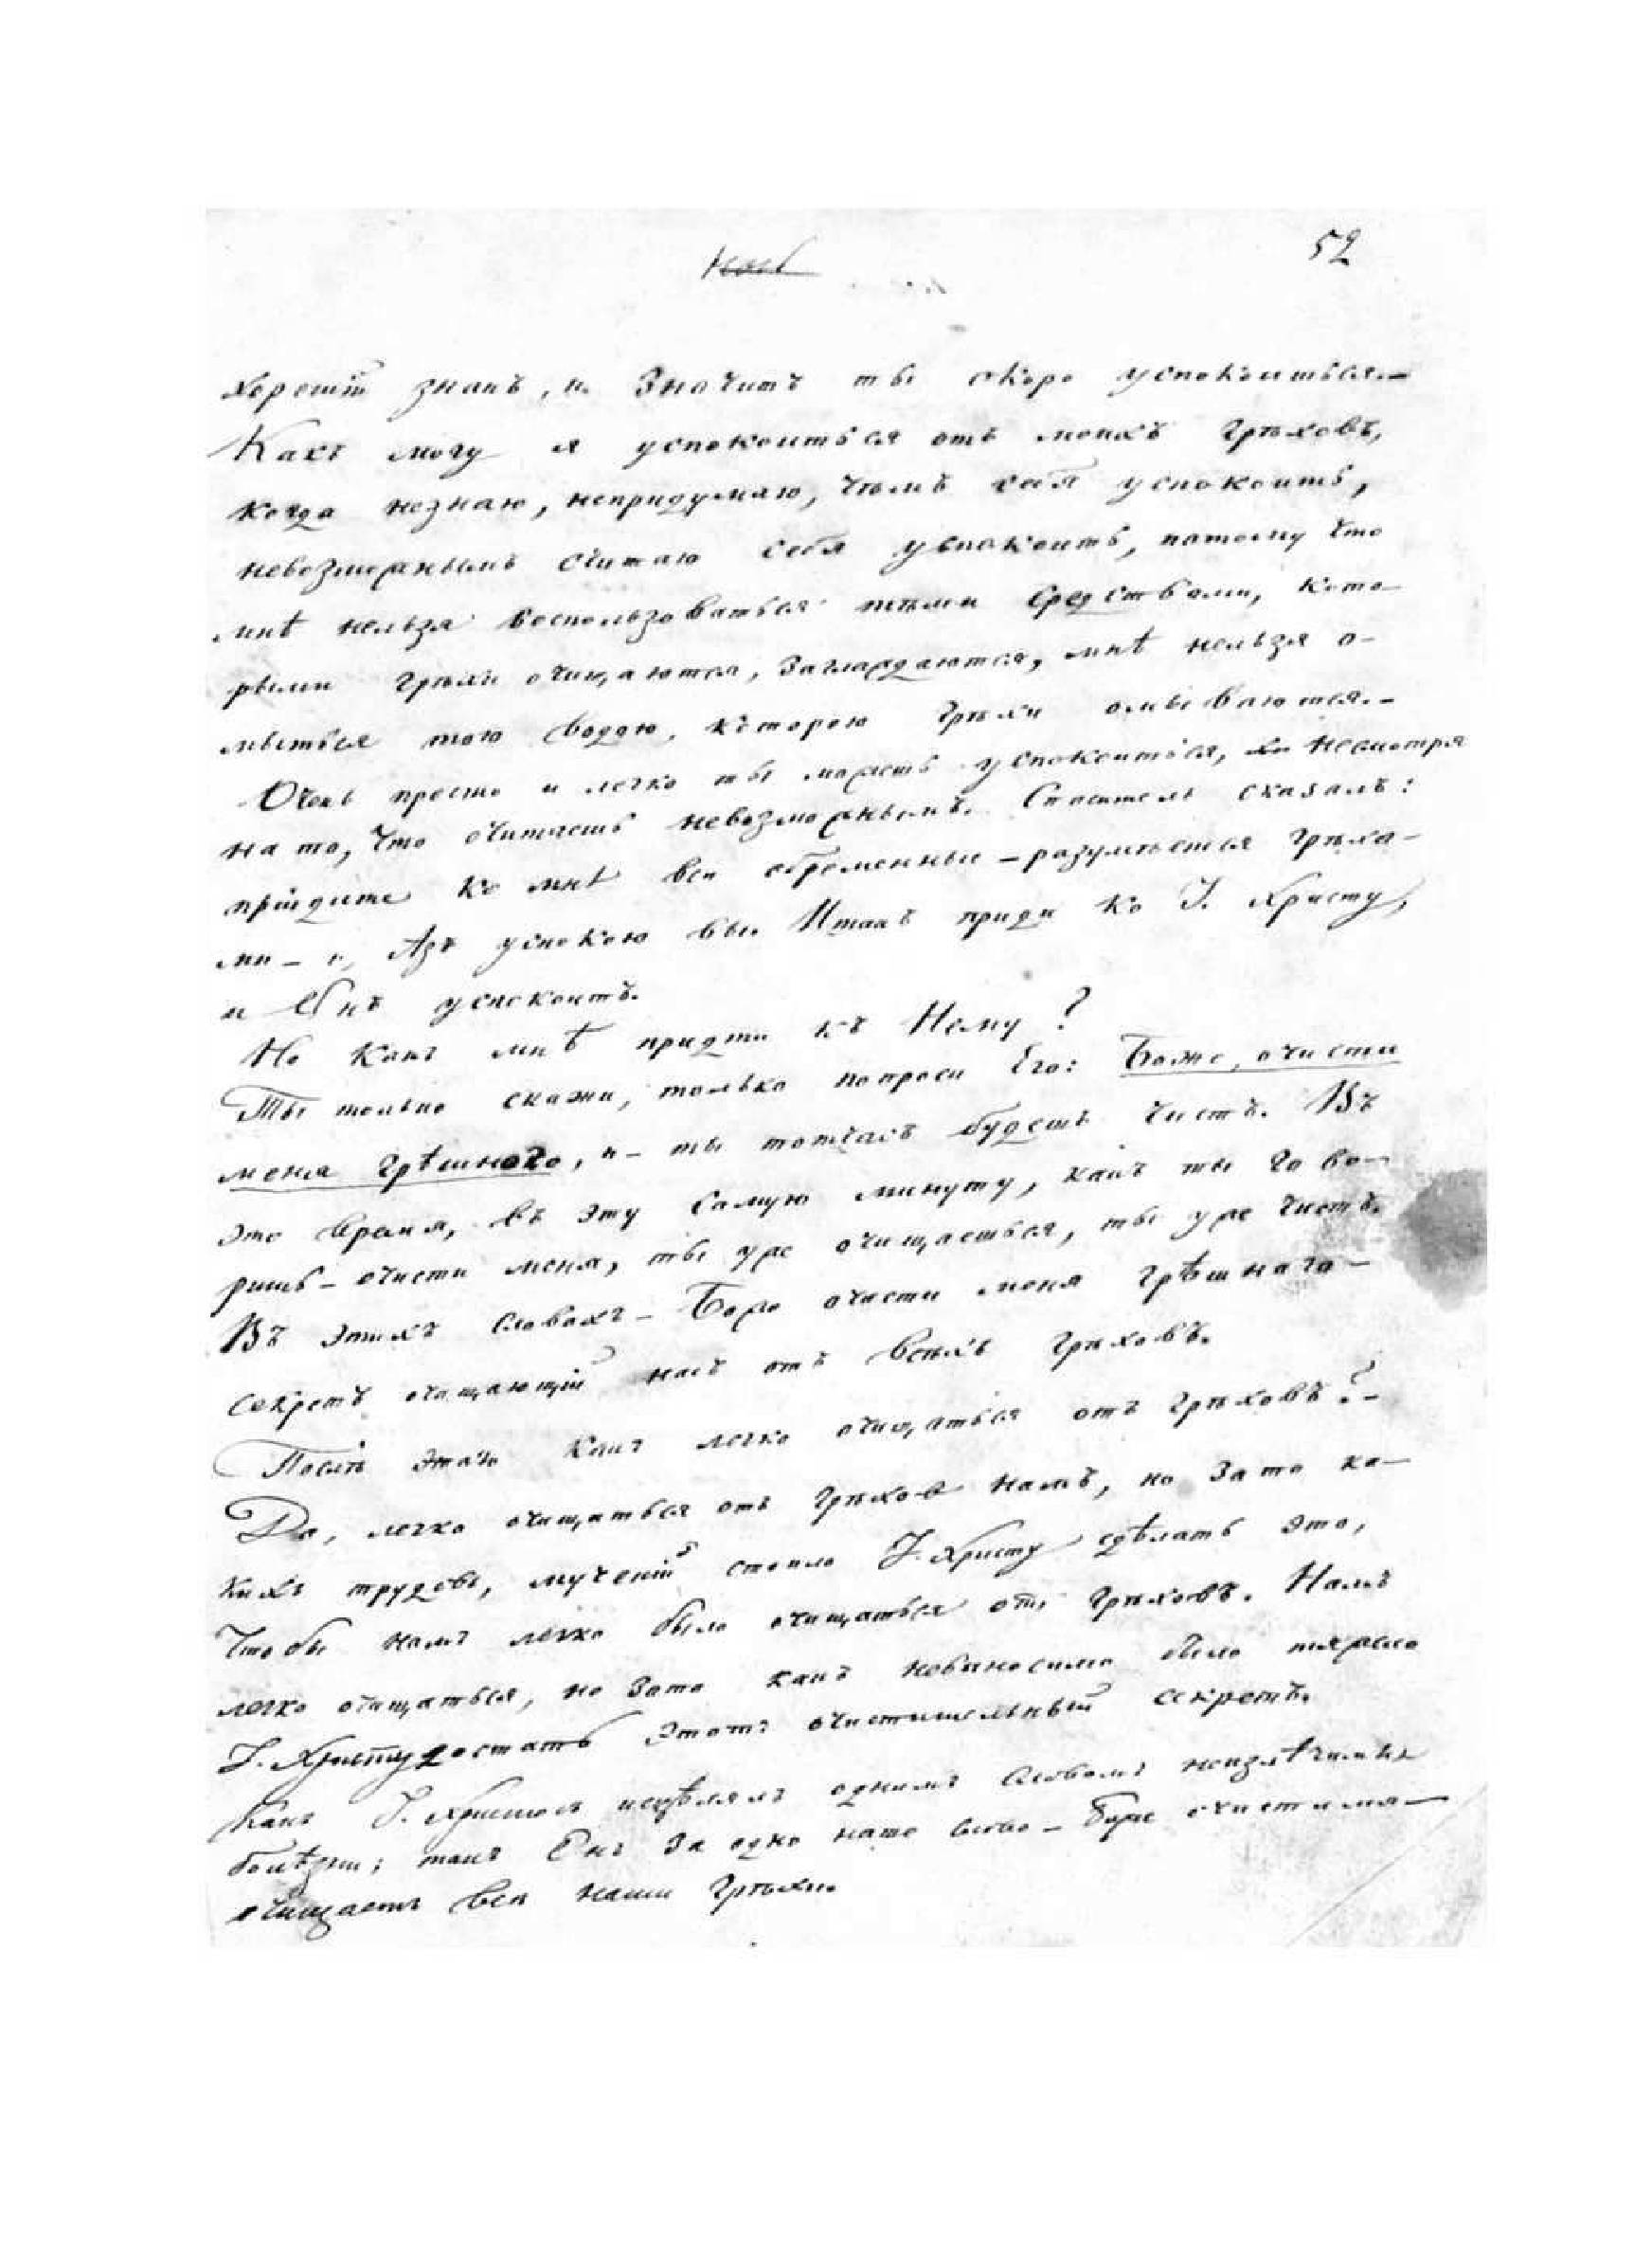 52
хорошій знакъ, и значитъ ты скоро успокоишься.—
Какъ могу я успокоиться отъ моихъ грѣховъ,
когда незнаю, непридумаю, чѣмъ себя успокоить,
невозможнымъ считаю себя успокоить, потому что
мнѣ нельзя воспользоваться тѣми средствами, кото-
рыми грѣхи очищаются, заглаждаются, мнѣ нельзя о-
мыться тою водою, которою грѣхи омываются.-
Очень просто и легко ты можешь успокоиться, несмотря
на то, что считаешь невозможнымъ. Спаситель сказалъ:
пріидите ко мнѣ вси обремененные – разумѣется грѣха-
ми – и Азъ успокою вы. Итакъ приди ко І. Христу,
и Онъ успокоитъ.
Но какъ мнѣ придти къ Нему?
Ты только скажи, только попроси Его: Боже, очисти
меня грѣшнаго, и – ты тотчасъ будешь чистъ. Въ
это время, въ эту самую минуту, какъ ты гово-
ришь – очисти меня, ты уже очищаешься, ты уже чистъ.
Въ этихъ словахъ – Боже очисти меня грѣшнаго –
секретъ очищающій насъ отъ всѣхъ грѣховъ.
Послѣ этаго какъ легко очищаться отъ грѣховъ?-
Да, легко очищаться отъ грѣховъ намъ, но зато ка-
кихъ трудовъ, мученій стоило І. Христу сдѣлать это,
чтобы намъ легко было очищаться отъ грѣховъ. Намъ
легко очищаться, но зато какъ невыносимо было тяжело
І. Христу достать этотъ очистительный секретъ.
Какъ І. Христосъ исцѣлялъ однимъ словомъ неизлѣчимыя
болѣзни; такъ Онъ за одно наше слово – Боже очисти мя –
очищаетъ вси наши грѣхи.